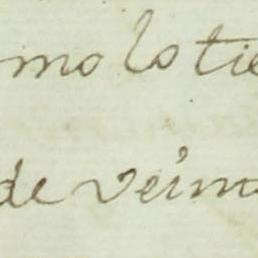 mo lo tie
de veina